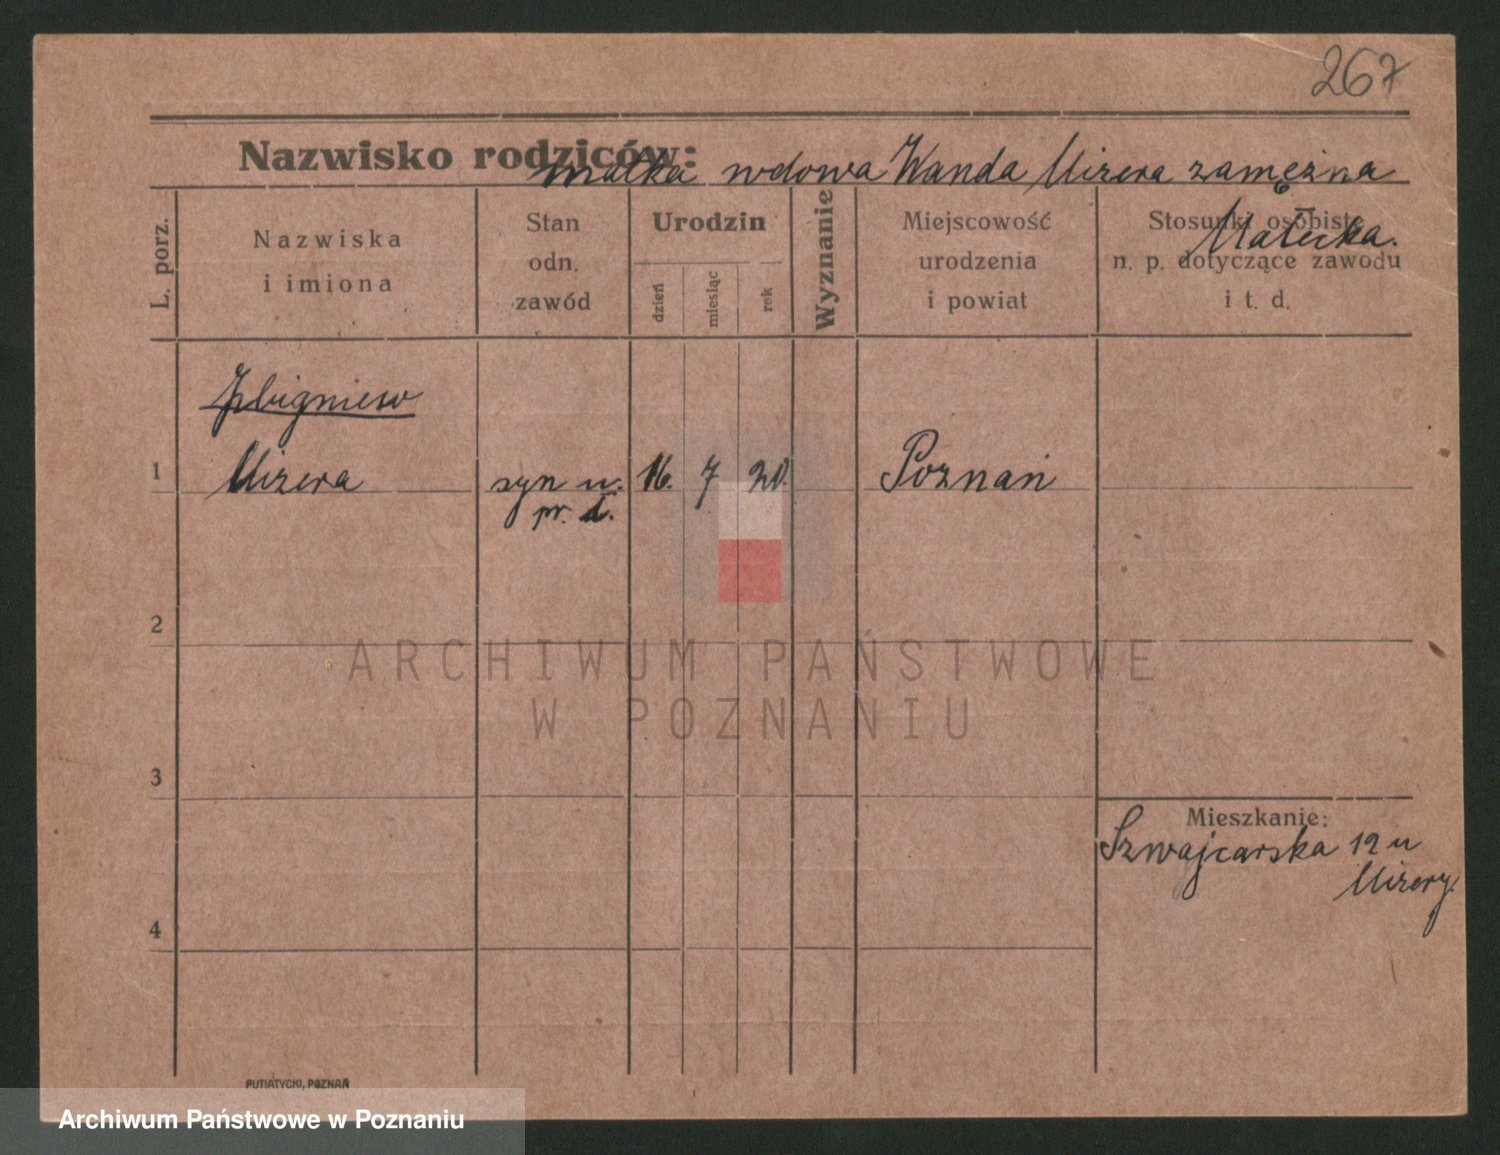 267
Nazwisko rodziców: matka wdowa Wanda Mizera zamężna
Małecka.
L. porz.
Nazwiska
i imiona
Stan
odn.
zawód
Urodzin
dzień
miesiąc
rok
Wyznanie
Miejscowość
urodzenia
i powiat
Stosunki osobiste
n. p. dotyczące zawodu
i t. d.
Zbigniew
1 Mizera syn u. 16. 7 20. Poznań
pr.
2
ARCHIWUM PAŃSTWOWE
W POZNANIU
3
Mieszkanie:
Szwajcarska 12 u
Mizery.
4
PUTIATYCKI, POZNAŃ
Archiwum Państwowe w Poznaniu